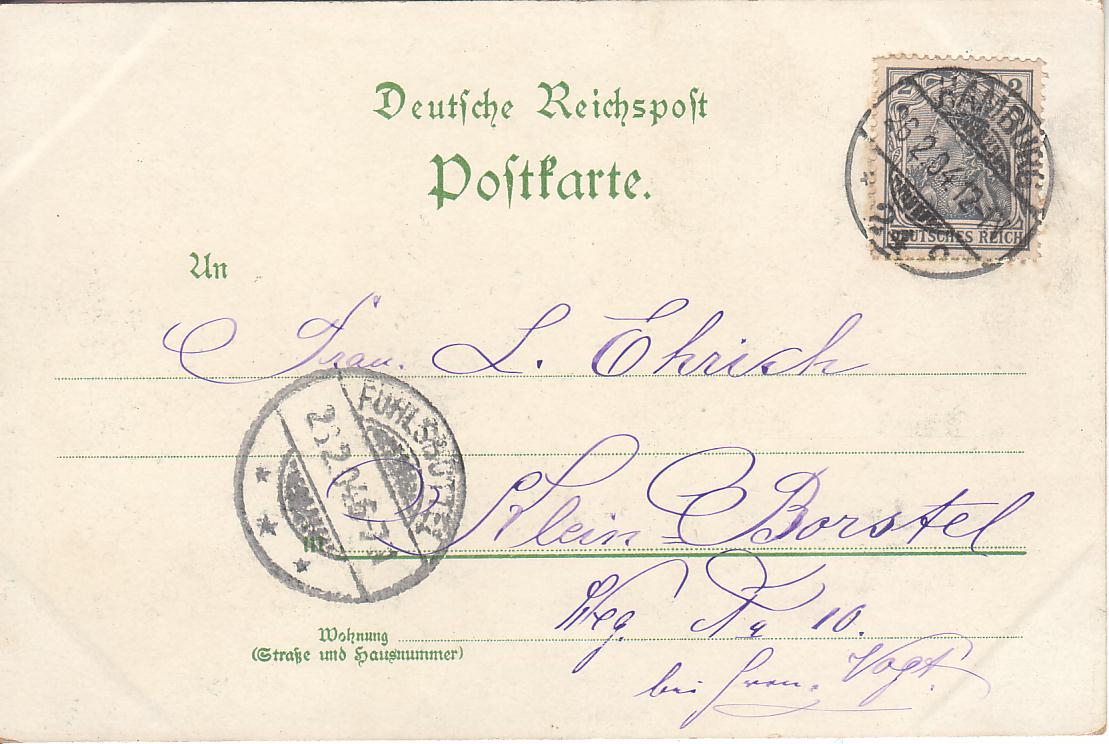 Deutsche Reichspost
Postkarte.
2 2
DEUTSCHES REICH
HAMBURG
26.2.04.12-1N
* 24 c
An
Frau. L. Ehrich
FUHLSBÜTTEL
26.2.04.5-
in Klein Borstel
Weg No 10.
Wohnung
(Straße und Hausnummer)
bei Frau. Vogt.